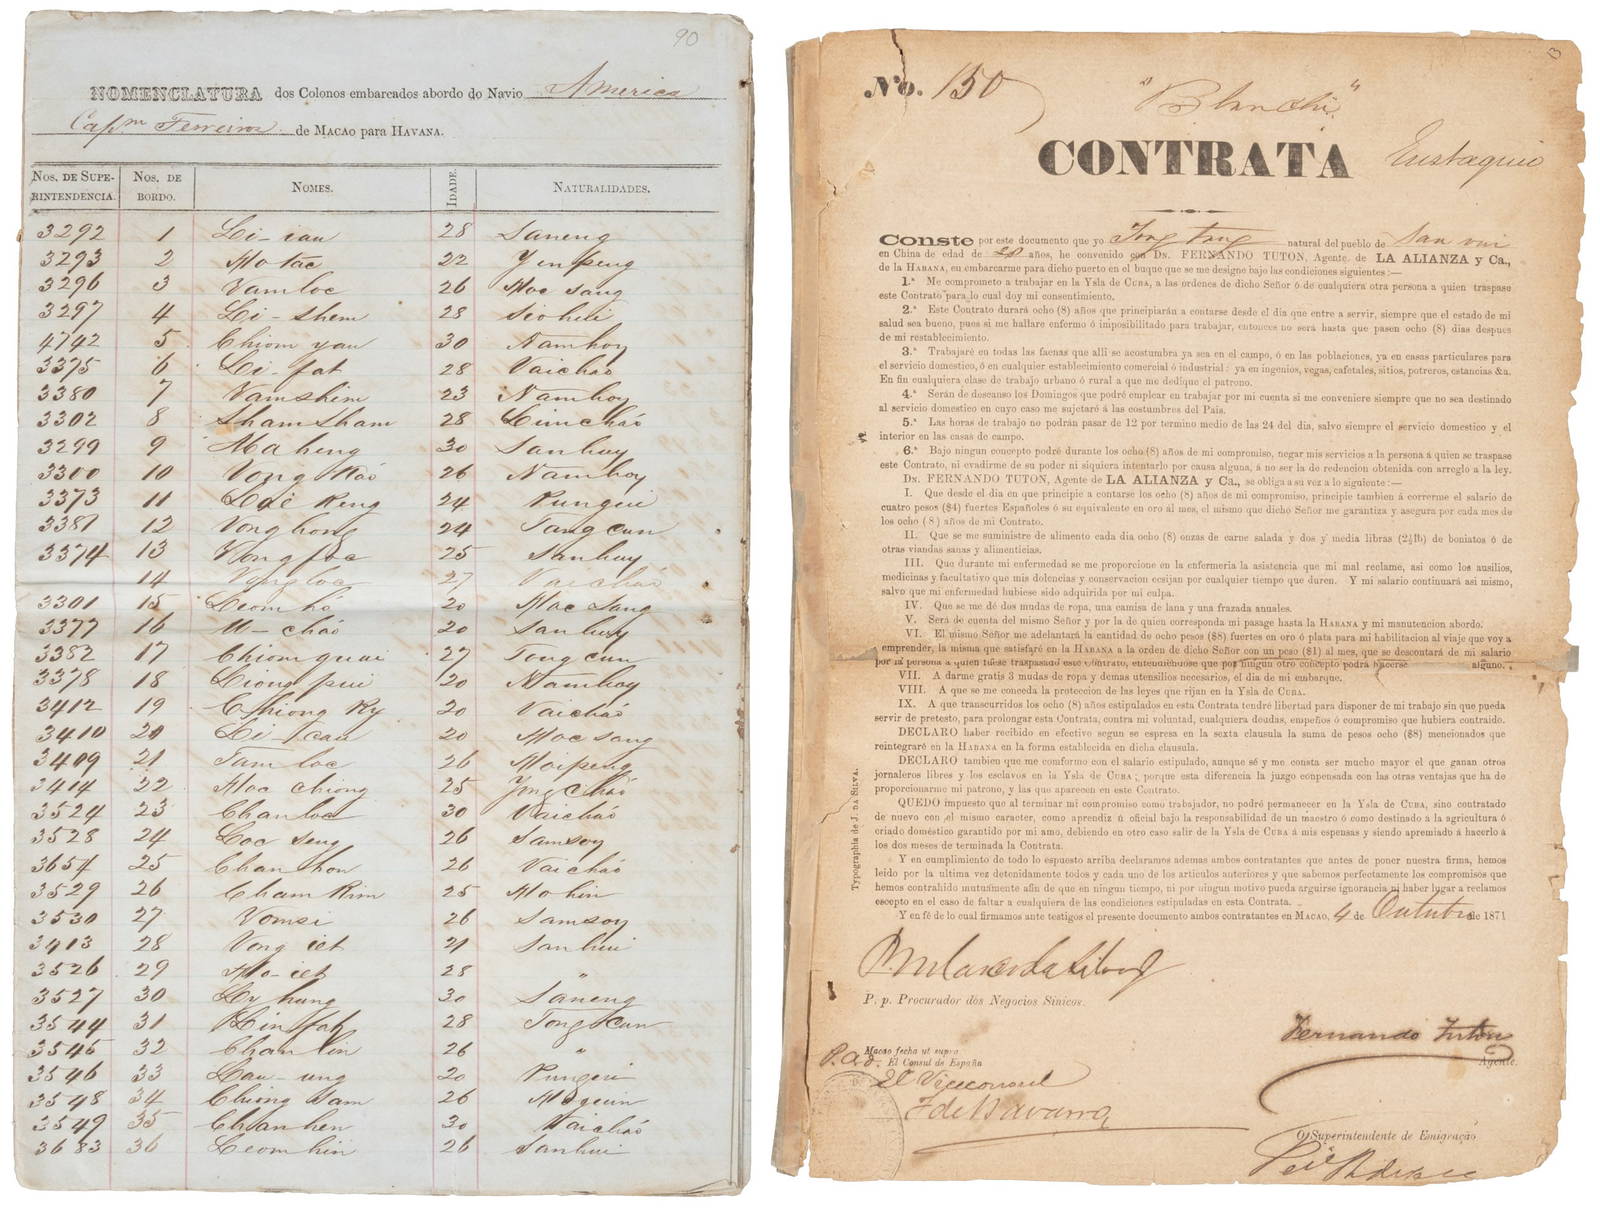 90
NOMENCLATURA dos Colonos embarcados abordo do Navio America
Capm Ferreiroz de MACAO para HAVANA.
NOS. DE SUPE-RINTENDENCIA. NOS. DE BORDO. NOMES. IDADE. NATURALIDADES.
3292 1 Li-iau 28 Saneng
3293 2 Ho tac 22 Yenpeng
3296 3 Vamloc 26 Hoc sang
3297 4 Li-Shem 28 Siohui
4742 5 Chiom yau 30 Namhoy
3375 6 Li-fat 28 Vaichao
3380 7 Vamshim 23 Namhoy
3302 8 Sham Sham 28 Cuinchao
3299 9 Ma heng 30 Sanhuy
3300 10 Vong Kao 26 Namhoy
3373 11 Loc Keng 24 Punqui
3381 12 Vong hong 24 Tang cun
3374 13 Vong foc 25 Sanhuy
14 Vong loc 27 Vaichao
3301 15 Leom ho 20 Hoc Sang
3377 16 U-chao 20 Sanhuy
3382 17 Chiom quai 27 Tong cun
3378 18 Liong pui 20 Namhoy
3412 19 Chiong Ky 20 Vaichao
3410 20 Li-cau 20 Hoc sang
3409 21 Tam loc 26 Hoipeng
3414 22 Hoc chiong 25 Yong Chao
3524 23 Chanloc 30 Vaichao
3528 24 Loc seng 26 Samsoy
3654 25 Chan hon 26 Vaichao
3529 26 Cham Kim 25 Ho hin
3530 27 Vomsi 26 Samsoy
3413 28 Vong iet 21 Sanhui
3526 29 Ho-iet 28 "
3527 30 Ly hung 30 Saneng
3544 31 Lin fat 28 Tong cun
3545 32 Chanlin 26 "
3546 33 Lau-ung 20 Punqui
3548 34 Chiong Sam 26 Hoquin
3549 35 Chanhen 30 Vaichao
3683 36 Leomhin 26 Sanhui
No. 150
"Blanchi"
CONTRATA Eustaquio
Conste por este documento que yo Tong Fong natural del pueblo de San vui
en China de edad de 20 años, he convenido con DN. FERNANDO TUTON, Agente de LA ALIANZA y Ca.,
de la HABANA, en embarcarme para dicho puerto en el buque que se me designe bajo las condiciones siguientes:—
1.ª Me comprometo a trabajar en la Ysla de CUBA, a las ordenes de dicho Señor ó de cualquiera otra persona a quien traspase
este Contrato para lo cual doy mi consentimiento.
2.ª Este Contrato durará ocho (8) años que principiarán a contarse desde el dia que entre a servir, siempre que el estado de mi
salud sea bueno, pues si me hallare enfermo ó imposibilitado para trabajar, entonces no será hasta que pasen ocho (8) dias despues
de mi restablecimento.
3.ª Trabajaré en todas las faenas que alli se acostumbra ya sea en el campo, ó en las poblaciones, ya en casas particulares para
el servicio domestico, ó en cualquier establecimento comercial ó industrial: ya en ingenios, vegas, cafetales, sitios, potreros, estancias &a.
En fin cualquiera clase de trabajo urbano ó rural a que me dedique el patrono.
4.ª Serán de descanso los Domingos que podré emplear en trabajar por mi cuenta si me conveniere siempre que no sea destinado
al servicio domestico en cuyo caso me sujetaré á las costumbres del Pais.
5.ª Las horas de trabajo no podrán pasar de 12 por termino medio de las 24 del dia, salvo siempre el servicio domestico y el
interior en las casas de campo.
6.ª Bajo ningun concepto podré durante los ocho (8) años de mi compromiso, negar mis servicios a la persona á quien se traspase
este Contrato, ni evadirme de su poder ni siquiera intentarlo por causa alguna, á no ser la de redencion obtenida con arreglo a la ley.
DN. FERNANDO TUTON, Agente de LA ALIANZA y Ca., se obliga a su vez a lo siguiente:—
I. Que desde el dia en que principie a contarse los ocho (8) años de mi compromiso, principie tambien á correrme el salario de
cuatro pesos ($4) fuertes Españoles ó su equivalente en oro al mes, el mismo que dicho Señor me garantiza y asegura por cada mes de
los ocho (8) años de mi Contrato.
II. Que se me suministre de alimento cada dia ocho (8) onzas de carne salada y dos y media libras (2½lb) de boniatos ó de
otras viandas sanas y alimenticias.
III. Que durante mi enfermedad se me proporcione en la enfermeria la asistencia que mi mal reclame, asi como los ausilios,
medicinas y facultativo que mis dolencias y conservacion ecsijan por cualquier tiempo que duren. Y mi salario continuará asi mismo,
salvo que mi enfermedad hubiese sido adquirida por mi culpa.
IV. Que se me dé dos mudas de ropa, una camisa de lana y una frazada anuales.
V. Será de cuenta del mismo Señor y por la de quien corresponda mi pasage hasta la HABANA y mi manutencion abordo.
VI. El mismo Señor me adelantará la cantidad de ocho pesos ($8) fuertes en oro ó plata para mi habilitacion al viaje que voy a
emprender, la misma que satisfaré en la HABANA a la orden de dicho Señor con un peso ($1) al mes, que se descontará de mi salario
por la persona a quien fuese traspasado este Contrato, entendiéndose que por ningun otro concepto podrá hacerse alguno.
VII. A darme gratis 3 mudas de ropa y demas utensilios necesarios, el dia de mi embarque.
VIII. A que se me conceda la proteccion de las leyes que rijan en la Ysla de CUBA.
IX. A que transcurridos los ocho (8) años estipulados en esta Contrata tendré libertad para disponer de mi trabajo sin que pueda
servir de pretesto, para prolongar esta Contrata, contra mi voluntad, cualquiera deudas, empeños ó compromiso que hubiera contraido.
DECLARO haber recibido en efectivo segun se espresa en la sexta clausula la suma de pesos ocho ($8) mencionados que
reintegraré en la HABANA en la forma establecida en dicha clausula.
DECLARO tambien que me conformo con el salario estipulado, aunque sé y me consta ser mucho mayor el que ganan otros
jornaleros libres y los esclavos en la Ysla de CUBA; porque esta diferencia la juzgo conpensada con las otras ventajas que ha de
proporcionarme mi patrono, y las que aparecen en este Contrato.
QUEDO impuesto que al terminar mi compromiso como trabajador, no podré permanecer en la Ysla de CUBA, sino contratado
de nuevo con el mismo caracter, como aprendiz ú oficial bajo la responsabilidad de un maestro ó como destinado a la agricultura ó
criado doméstico garantido por mi amo, debiendo en otro caso salir de la Ysla de CUBA á mis espensas y siendo apremiado á hacerlo á
los dos meses de terminada la Contrata.
Y en cumplimiento de todo lo espuesto arriba declaramos ademas ambos contratantes que antes de poner nuestra firma, hemos
leido por la ultima vez detenidamente todos y cada uno de los articulos anteriores y que sabemos perfectamente los compromisos que
hemos contrahido mutuámente afin de que en ningun tiempo, ni por ningun motivo pueda arguirse ignorancia ni haber lugar a reclamos
escepto en el caso de faltar a cualquiera de las condiciones estipuladas en esta Contrata.
Y en fé de lo cual firmamos ante testigos el presente documento ambos contratantes en MACAO, 4 de Outubro de 1871
Typographia de J. DA SILVA.
P. p. Procurador dos Negocios Sinicos.
Fernando Tuton
Agente.
Macao fecha ut supra
P.a.d. El Consul de España
El Viceconsul
F de Navarro
O Superintendente de Emigração